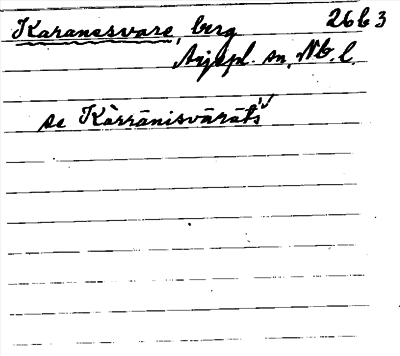 Karanesvare, berg 26 b 3
Arjepl. sn, Nb. l.
se Kàrrānisvārāts